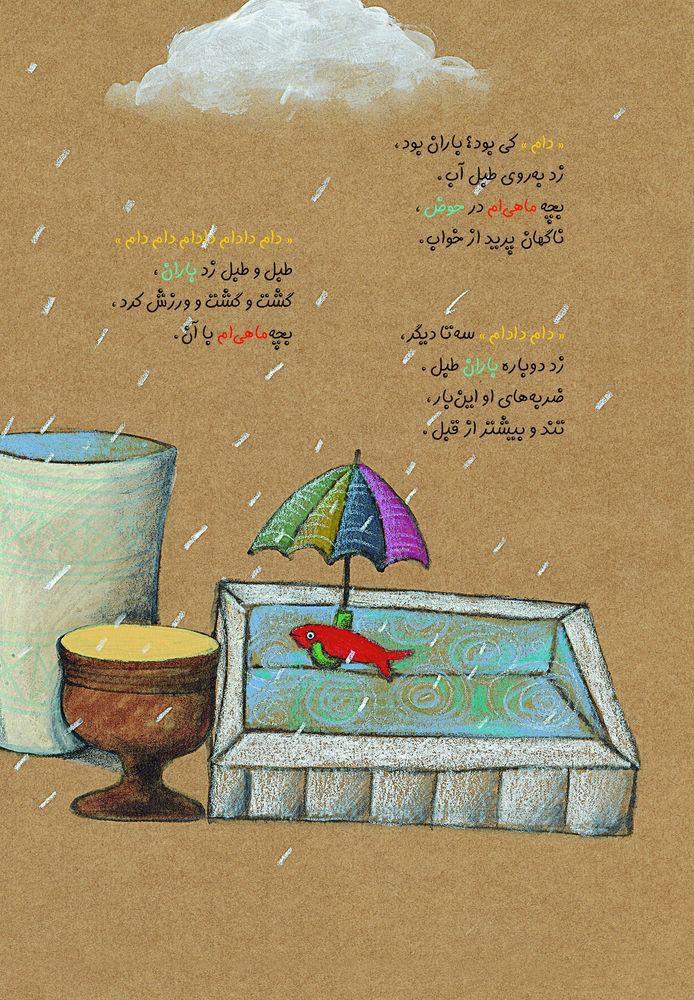 « دام » کی بود؟ باران بود،
زد به‌روی طبل آب.
بچه ماهی‌ام در حوض،
ناگهان پرید از خواب.
« دام دادام » سه‌تا دیگر،
زد دوباره باران طبل.
ضربه‌های او این‌بار،
تند و بیشتر از قبل.
« دام دادام دادام دام دام »
طبل و طبل زد باران،
گشت و گشت و ورزش کرد،
بچه‌ماهی‌ام با آن.